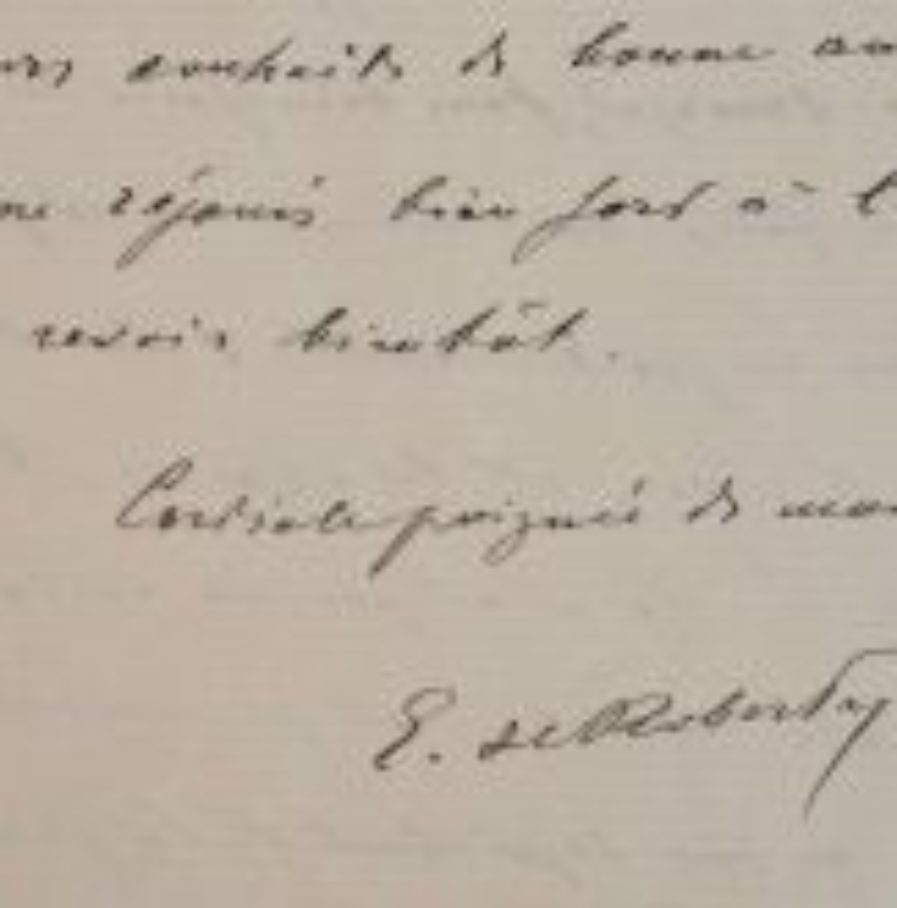 souhaits de bonne an
me réjouis bien fort à l
revoir bientôt.
Cordiale poignée de mai
E. de Roberty